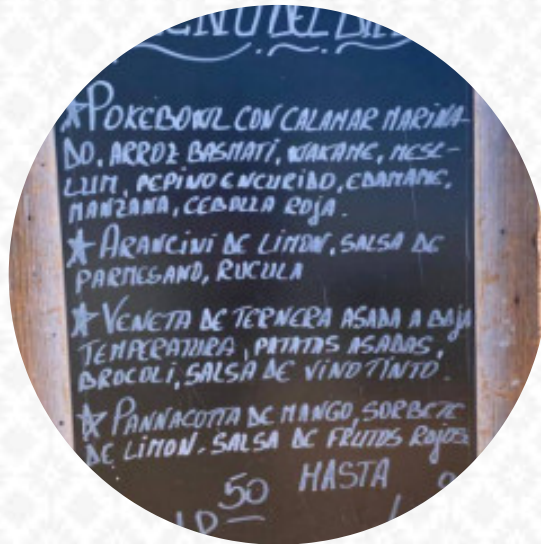 DEL
★ POKEBOWL CON CALAMAR MARINA-
DO, ARROZ BASMATI, WAKAME, MESC-
LUM, PEPINO ENCURIDO, EDAMAME,
MANZANA, CEBOLLA ROJA.
★ ARANCINI DE LIMON, SALSA DE
PARMESANO, RUCULA
★ VENETA DE TERNERA ASADA A BAJA
TEMPERATURA, PATATAS ASADAS,
BROCOLI, SALSA DE VINO TINTO.
★ PANNACOTTA DE MANGO, SORBETE
DE LIMON. SALSA DE FRUTOS ROJOS
50 HASTA